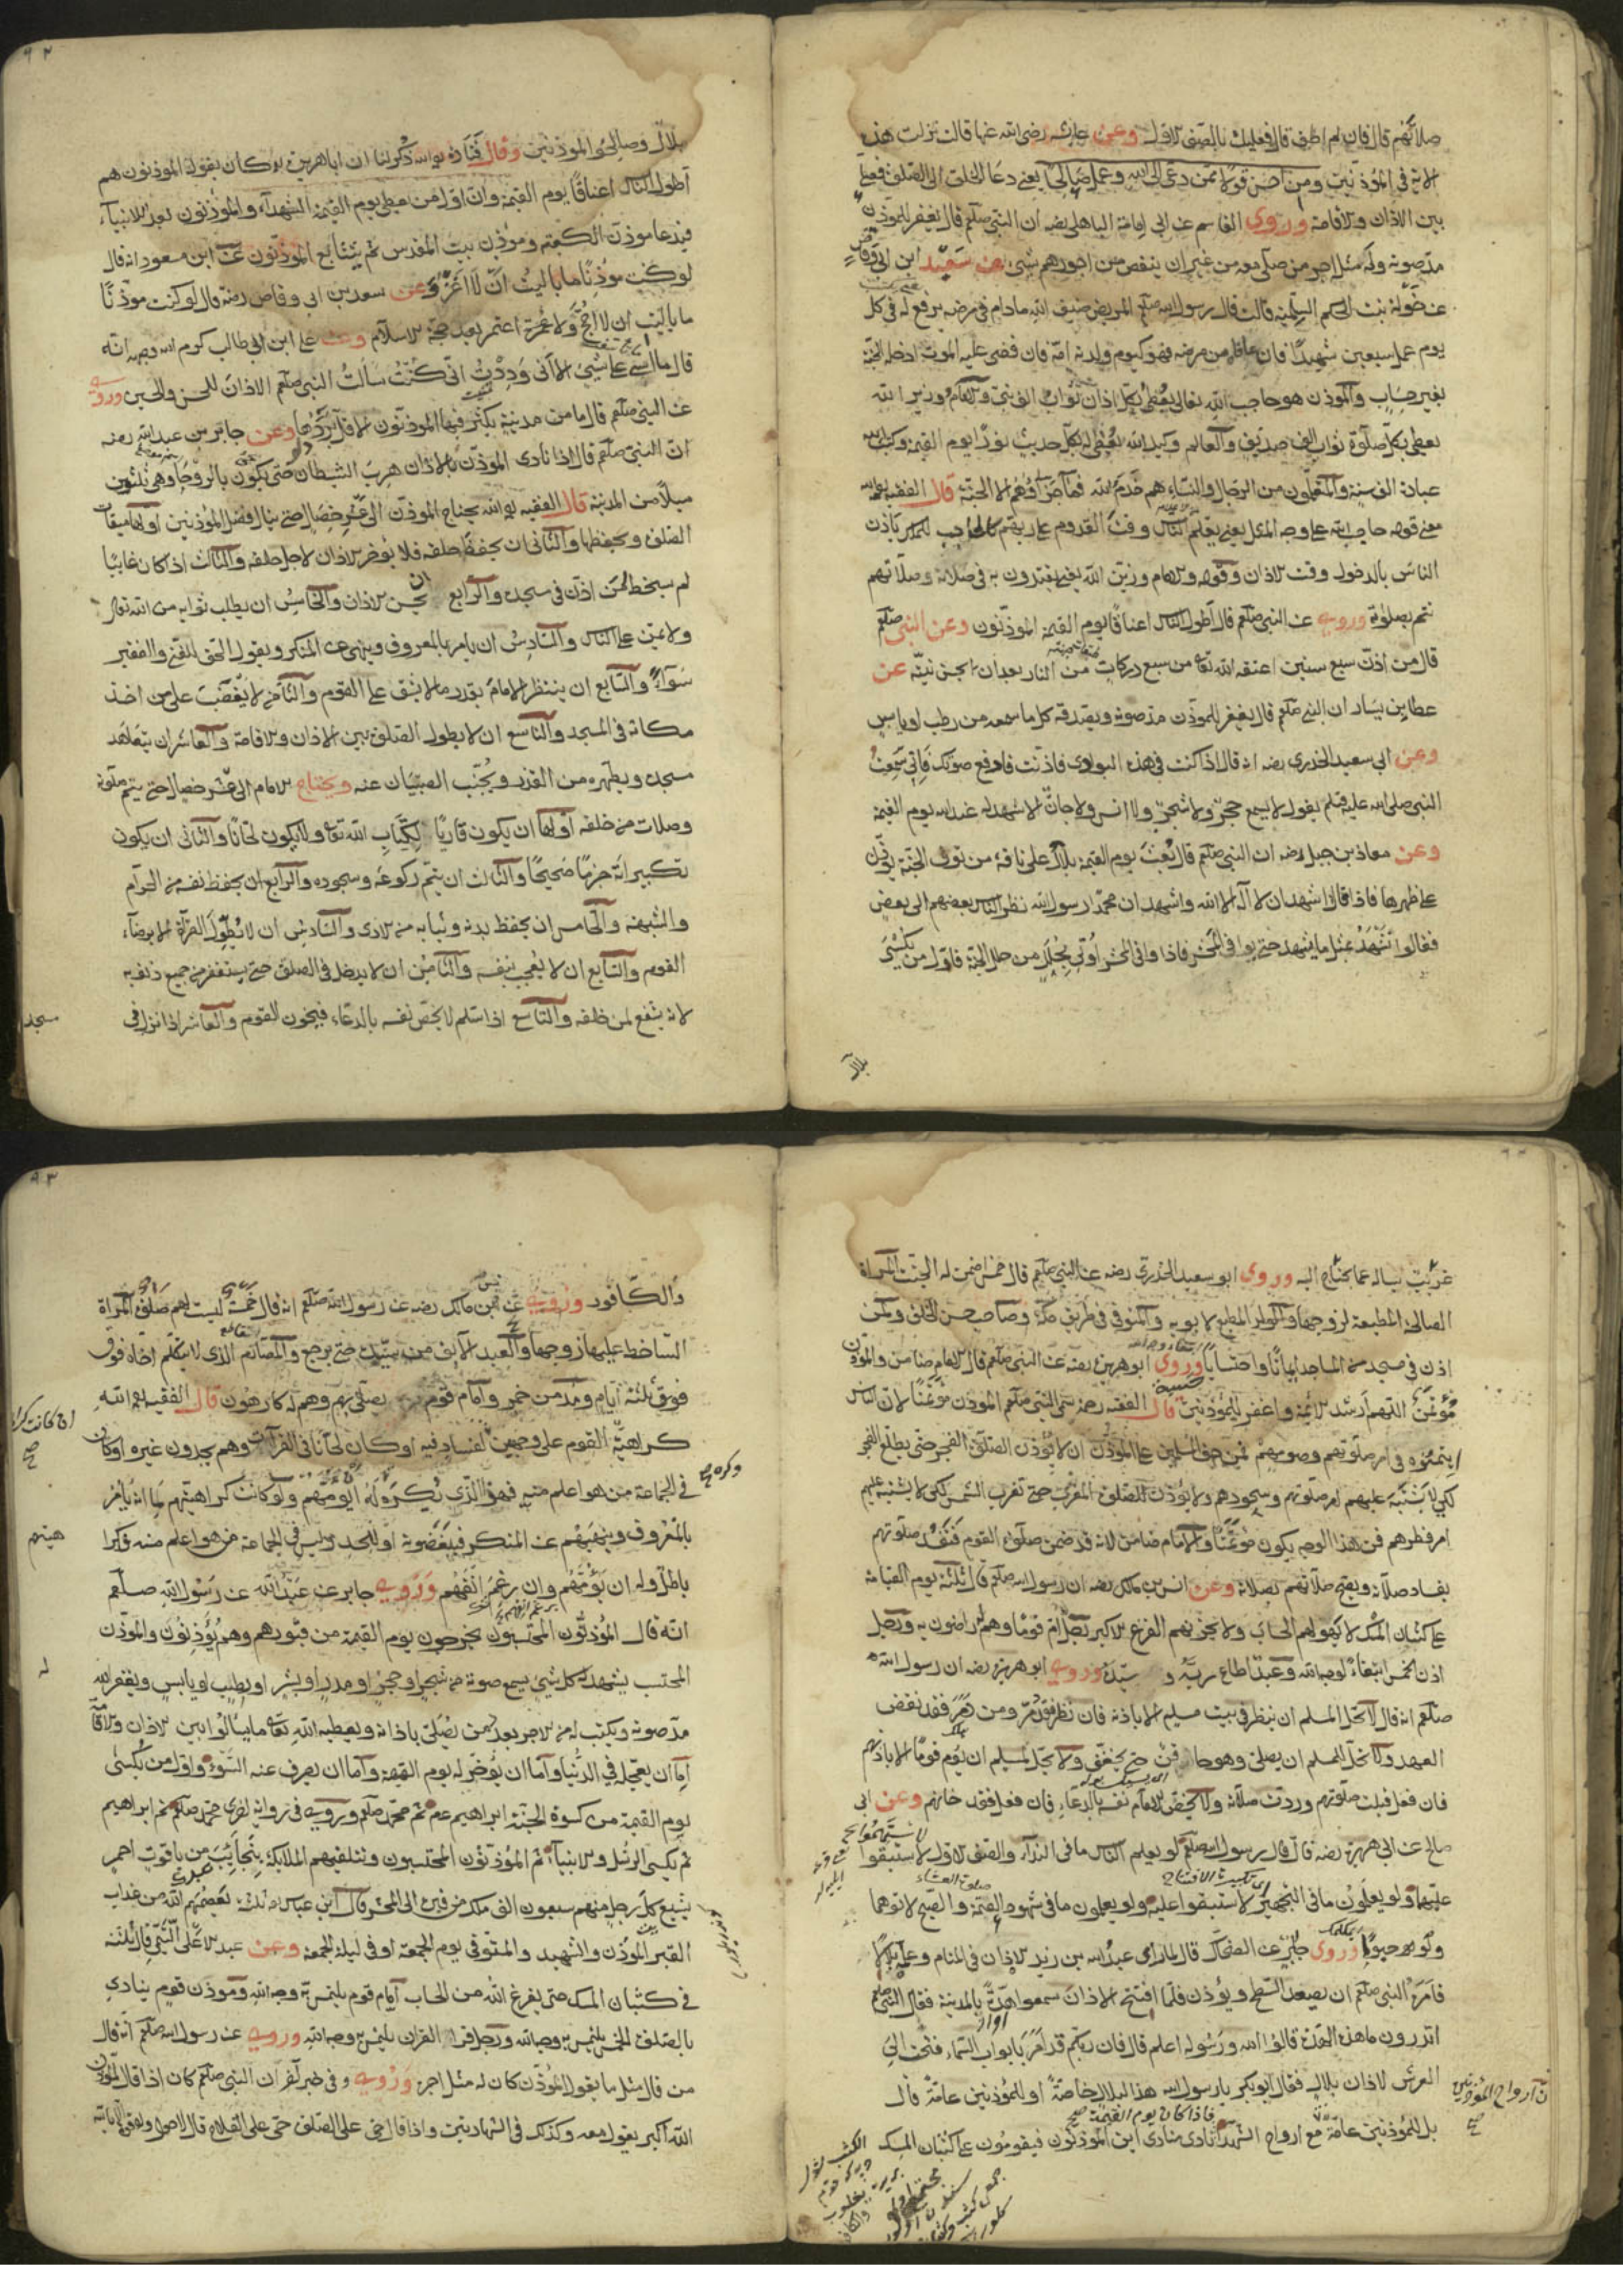 صلاتهم قال فان لم اطق قال فعليك بالصف الاول وعن عايشة رضى الله عنها قالت نزلت هذه
الاية فى المؤذنين ومن احسن قولا ممن دعى الى الله وعمل صالحا يعنى دعا الخلق الى الصلوة فصلى
بين الاذان والاقامة وروى القاسم عن ابى امامة الباهلى رضه ان النبى صلعم قال يغفر للمؤذن
مد صوته وله مثل اجر من صلى معه من غير ان ينقص من اجورهم شئ عن سعيد ابن ابى وقاص
عن خولة بنت الحكم السلمية قالت قال رسول الله صلعم المريض ضيف الله مادام فى مرضه يرفع له فى كل
يوم عمل سبعين شهيدا فان عافاه من مرضه فهو كيوم ولدته امه فان قضى عليه الموت ادخله الجنة
بغير حساب والموذن هو حاجب الله تعالى يعطى بكل اذان ثواب الف نبى والامام وزير الله
يعطى بكل صلوة ثواب الف صديق والعالم وكيل الله يعطى له بكل حديث نورا يوم القيمة وكتب له
عبادة الف سنة والمتعلمون من الرجال والنساء هم خدم الله فما جزاؤهم الا الجنة قال الفقيه رحمه الله
معنى قوله حاجب الله على وجه المثل يعنى يعلم الناس وقت القدوم على ربهم كالحاجب للملك ياذن
الناس بالدخول وقت الاذان وقوله والامام وزير الله يعنى يقتدون به فى صلاته وصلاتهم
تتم بصلوته وروى عن النبى صلعم قال اطول الناس اعناقا يوم القيمة المؤذنون وعن النبى صلعم
قال من اذن سبع سنين اعتقه الله تعا من سبع دركات من النار بعد ان احسن نيته عن
عطا بن يسار ان النبى صلعم قال يغفر للموذن مد صوته ويصدقه كل ما سمعه من رطب او يابس
وعن ابى سعيد الخدرى رضه انه قال اذا كنت فى هذه البوادى فاذنت فارفع صوتك فانى سمعت
النبى صلى الله عليه وسلم يقول لا يسمع حجر ولا شجر ولا انس ولا جان الا شهد له عند الله يوم القيمة
وعن معاذ بن جبل رضه ان النبى صلعم قال يبعث يوم القيمة بلال على ناقة من نوق الجنة يؤذن
على ظهرها فاذا قال اشهد ان لا اله الا الله واشهد ان محمدا رسول الله نظر الناس بعضهم الى بعض
فقالوا نشهد بمثل ما يشهد حتى يوافى المحشر فاذا وافى المحشر اوتى بحلل من حلل الجنة فاول من يكسى
بلال
بلال وصالحوا الموذنين وقال قتادة رحمه الله ذكر لنا ان ابا هريرة رضه كان يقول الموذنون هم
اطول الناس اعناقا يوم القيمة وان اول من يعطى يوم القيمة الشهداء والموذنون بعد الانبياء
فيدعا موذن الكعبة وموذن بيت المقدس ثم يتتابع الموذنون عن ابن مسعود انه قال
لو كنت موذنا ما باليت ان لا اغزو وعن سعد بن ابى وقاص رضه قال لو كنت موذنا
ما باليت ان لا احج ولا عمرة اعتمر بعد حجة الاسلام وعن على ابن ابى طالب كرم الله وجهه انه
قال ما اسى على شئ الا انى وددت انى كنت سالت النبى صلعم الاذان للحسن والحسين وروى
عن النبى صلعم قال ما من مدينة يكثر فيها الموذنون الا قل بردها وعن جابر بن عبد الله رضه
ان النبى صلعم قال اذا نادى الموذن بالاذان هرب الشيطان حتى يكون بالروحا وهى ثلثون
ميلا من المدينة قال الفقيه رحمه الله يحتاج الموذن الى عشر خصال حتى ينال فضل الموذنين اولها ميقات
الصلوة ويحفظها والثانى ان يحفظ حلقه فلا يوخر الاذان لاجل حلقه والثالث اذا كان غايبا
لم يسخط لمن اذن فى مسجده والرابع ان يحسن الاذان والخامس ان يطلب ثوابه من الله تعالى
ولا يمن على الناس والسادس ان يامر بالمعروف وينهى عن المنكر ويقول الحق للغنى والفقير
سواء والسابع ان ينتظر الامام بقدر ما لا يشق على القوم والثامن لا يغضب على من اخذ
مكانه فى المسجد والتاسع ان لا يطول الصلوة بين الاذان والاقامة والعاشر ان يتعاهد
مسجده ويطهره من القذر ويجنب الصبيان عنه ويحتاج الامام الى عشر خصال حتى يتم صلوته
وصلات من خلفه اولها ان يكون قاريا لكتاب الله تعا ولا يكون لحانا والثانى ان يكون
تكبيراته جزما صحيحا والثالث ان يتم ركوعه وسجوده والرابع ان يحفظ نفسه من الحرام
والشبهة والخامس ان يحفظ بدنه وثيابه من الاذى والسادس ان لا يطول القراة الا برضاء
القوم والسابع ان لا يعجب بنفسه والثامن ان لا يدخل فى الصلوة حتى يستغفر من جميع ذنوبه
لانه يشفع لمن خلفه والتاسع اذا سلم لا يخص نفسه بالدعاء فيخون القوم والعاشر اذا نزل فى
مسجده
غريب يساله عما يحتاج اليه وروى ابو سعيد الخدرى رضه عن النبى صلعم قال خمس اضمن له الجنة المراة
الصالحة المطيعة لزوجها والولد المطيع لابويه والمتوفى فى طريق مكة وصاحب حسن الخلق ومن
اذن فى مسجد من المساجد ايمانا واحتسابا وروى ابو هريرة رضه عن النبى صلعم قال الامام ضامن والموذن
مؤتمن اللهم ارشد الائمة واغفر للموذنين قال الفقيه رحمه سمى النبى صلعم الموذن مؤتمنا لان الناس
ايتمنوه فى امر صلوتهم وصومهم فمن حق المسلمين على الموذن ان لا يؤذن الصلوة الفجر حتى يطلع الفجر
لكى لا يشتبه عليهم امر صلوتهم وسحورهم ولا يؤذن للصلوة المغرب حتى تغرب الشمس لكى لا يشتبه عليهم
امر فطرهم فمن هذا الوجه يكون مؤتمنا والامام ضامن لانه قد ضمن صلوة القوم فتفسد صلوتهم
بفساد صلاته ويصح صلاتهم بصلاته وعن انس بن مالك رضه ان رسول الله صلعم قال ثلثة يوم القيامة
على كثبان المسك لا يهولهم الحساب ولا يحزنهم الفزع الاكبر رجل ام قوما وهم له راضون به ورجل
اذن الخمس ابتغاء لوجه الله وعبد اطاع ربه و سيده وروى ابو هريرة رضه ان رسول الله
صلعم انه قال لا يحل المسلم ان ينظر فى بيت مسلم الا باذنه فان نظر فقد دمر ومن دمر فقد نقض
العهد ولا يحل لمسلم ان يصلى وهو حاقن حتى يخفف ولا يحل لمسلم ان يؤم قوما الا باذنهم
فان فعل قبلت صلوتهم وردت صلاته ولا يخص الامام نفسه بالدعاء فان فعل فقد خانهم وعن ابى
صالح عن ابى هريرة رضه قال قال رسول الله صلعم لو يعلم الناس ما فى النداء والصف الاول لاستبقوا
عليهما ولو يعلمون ما فى التهجير لاستبقوا عليه ولو يعلمون ما فى شهود العتمة والصبح لاتوهما
ولو حبوا وروى جابر عن الضحاك قال لما راى عبد الله بن زيد الاذان فى المنام وعلم بلالا
فامره النبى صلعم ان يصعد السطح ويؤذن فلما افتتح الاذان سمعوا هدة بالمدينة فقال النبى صلعم
اتدرون ما هذه الهدة قالوا الله ورسوله اعلم قال فان ربكم قد امر بابواب السماء ففتحت الى
العرش لاذان بلال فقال ابو بكر يا رسول الله هذا لبلال خاصة او للموذنين عامة قال
بل للمؤذنين عامة مع ارواح الشهدا نادى منادى اين المؤذنون فيقومون على كثبان المسك
ان ارواح المؤذنين
صح
فاذا كان يوم القيمة صح
والكافور وروى عن انس بن مالك رضه عن رسول الله صلعم انه قال خمسة ليست لهم صلوة المراة
الساخط عليها زوجها والعبد الابق من سيده حتى يرجع والمصارم الذى لا يكلم اخاه فوق
فوق ثلثة ايام ومدمن خمر وامام قوم يصلى بهم وهم له كارهون قال الفقيه رحمه الله
كراهية القوم على وجهين لفساد فيه او كان لحانا فى القرآن وهم يجدون غيره او كان
فى الجماعة من هو اعلم منه فهو الذى يكره له ان يؤمهم ولو كانت كراهيتهم لما انه يامر
بالمعروف وينهيهم عن المنكر فيبغضونه او للحسد وليس فى الجماعة من هو اعلم منه فكرا
هيتهم
باطل وله ان يؤمهم وان رغم انفهم وروى جابر عن عبد الله عن رسول الله صلعم
انه قال المؤذنون المحتسبون يخرجون يوم القيمة من قبورهم وهم يؤذنون والموذن
المحتسب يشهد له كل شئ يسمع صوته من شجر او حجر او مدر او بشر او رطب او يابس ويغفر الله
له
مد صوته ويكتب له من الاجر بعدد من يصلى باذانه ويعطيه الله تعا ما يسال بين الاذان والاقامة
اما ان يعجل له فى الدنيا واما ان يوخر له يوم القيمة واما ان يصرف عنه السوء واول من يكسى
يوم القيمة من كسوة الجنة ابراهيم عم ثم محمد صلعم وروى فى رواية اخرى محمد صلعم ثم ابراهيم
ثم يكسى الرسل والانبياء ثم المؤذنون المحتسبون وتتلقيهم الملائكة بنجايب من ياقوت احمر
يشيع كل رجل منهم سبعون الف ملك من قبره الى المحشر وقال ابن عباس رضه ثلث يعصمهم الله من عذاب
القبر الموذن والشهيد والمتوفى يوم الجمعة او فى ليلة الجمعة وعن عبد الاعلى التيمى قال ثلثة
فى كثبان المسك حتى يفرغ الله من الحساب امام قوم يلتمس به وجه الله وموذن قوم ينادى
بالصلوة الخمس يلتمس به وجه الله ورجل قرا القران يلتمس به وجه الله وروى عن رسول الله صلعم انه قال
من قال مثل ما يقول المؤذن كان له مثل اجره وروى وفى خبر اخر ان النبى صلعم كان اذا قال المؤذن
الله اكبر يقول معه وكذلك فى الشهادتين واذا قال حى على الصلوة حى على الفلاح قال لا حول ولا قوة الا بالله